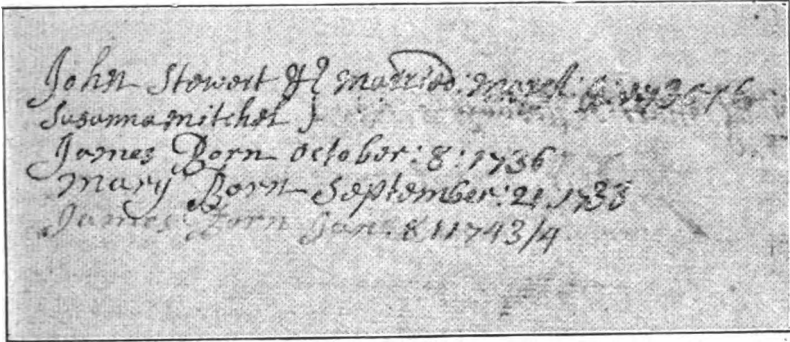 John Stewert & } married: march: 6: 1735/6
Susanna mitchel }
James Born october: 8: 1736
mary Born September: 21 1738
James Born Jan: 8 1743/4